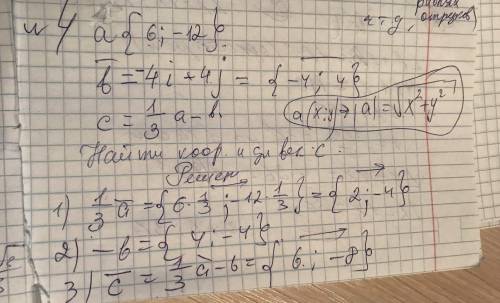 №4 a {6; -12}
b = -4i + 4j = {-4; 4}
c = 1/3 a - b.
a{x;y}⇒|a| = √x²+y²
Найти коор. и дл век. c.
Решен
1) 1/3 a = {6·1/3; -12·1/3} = {2; -4}
2) -b = {4; -4}
3) c = 1/3 a - b = {6; -8}